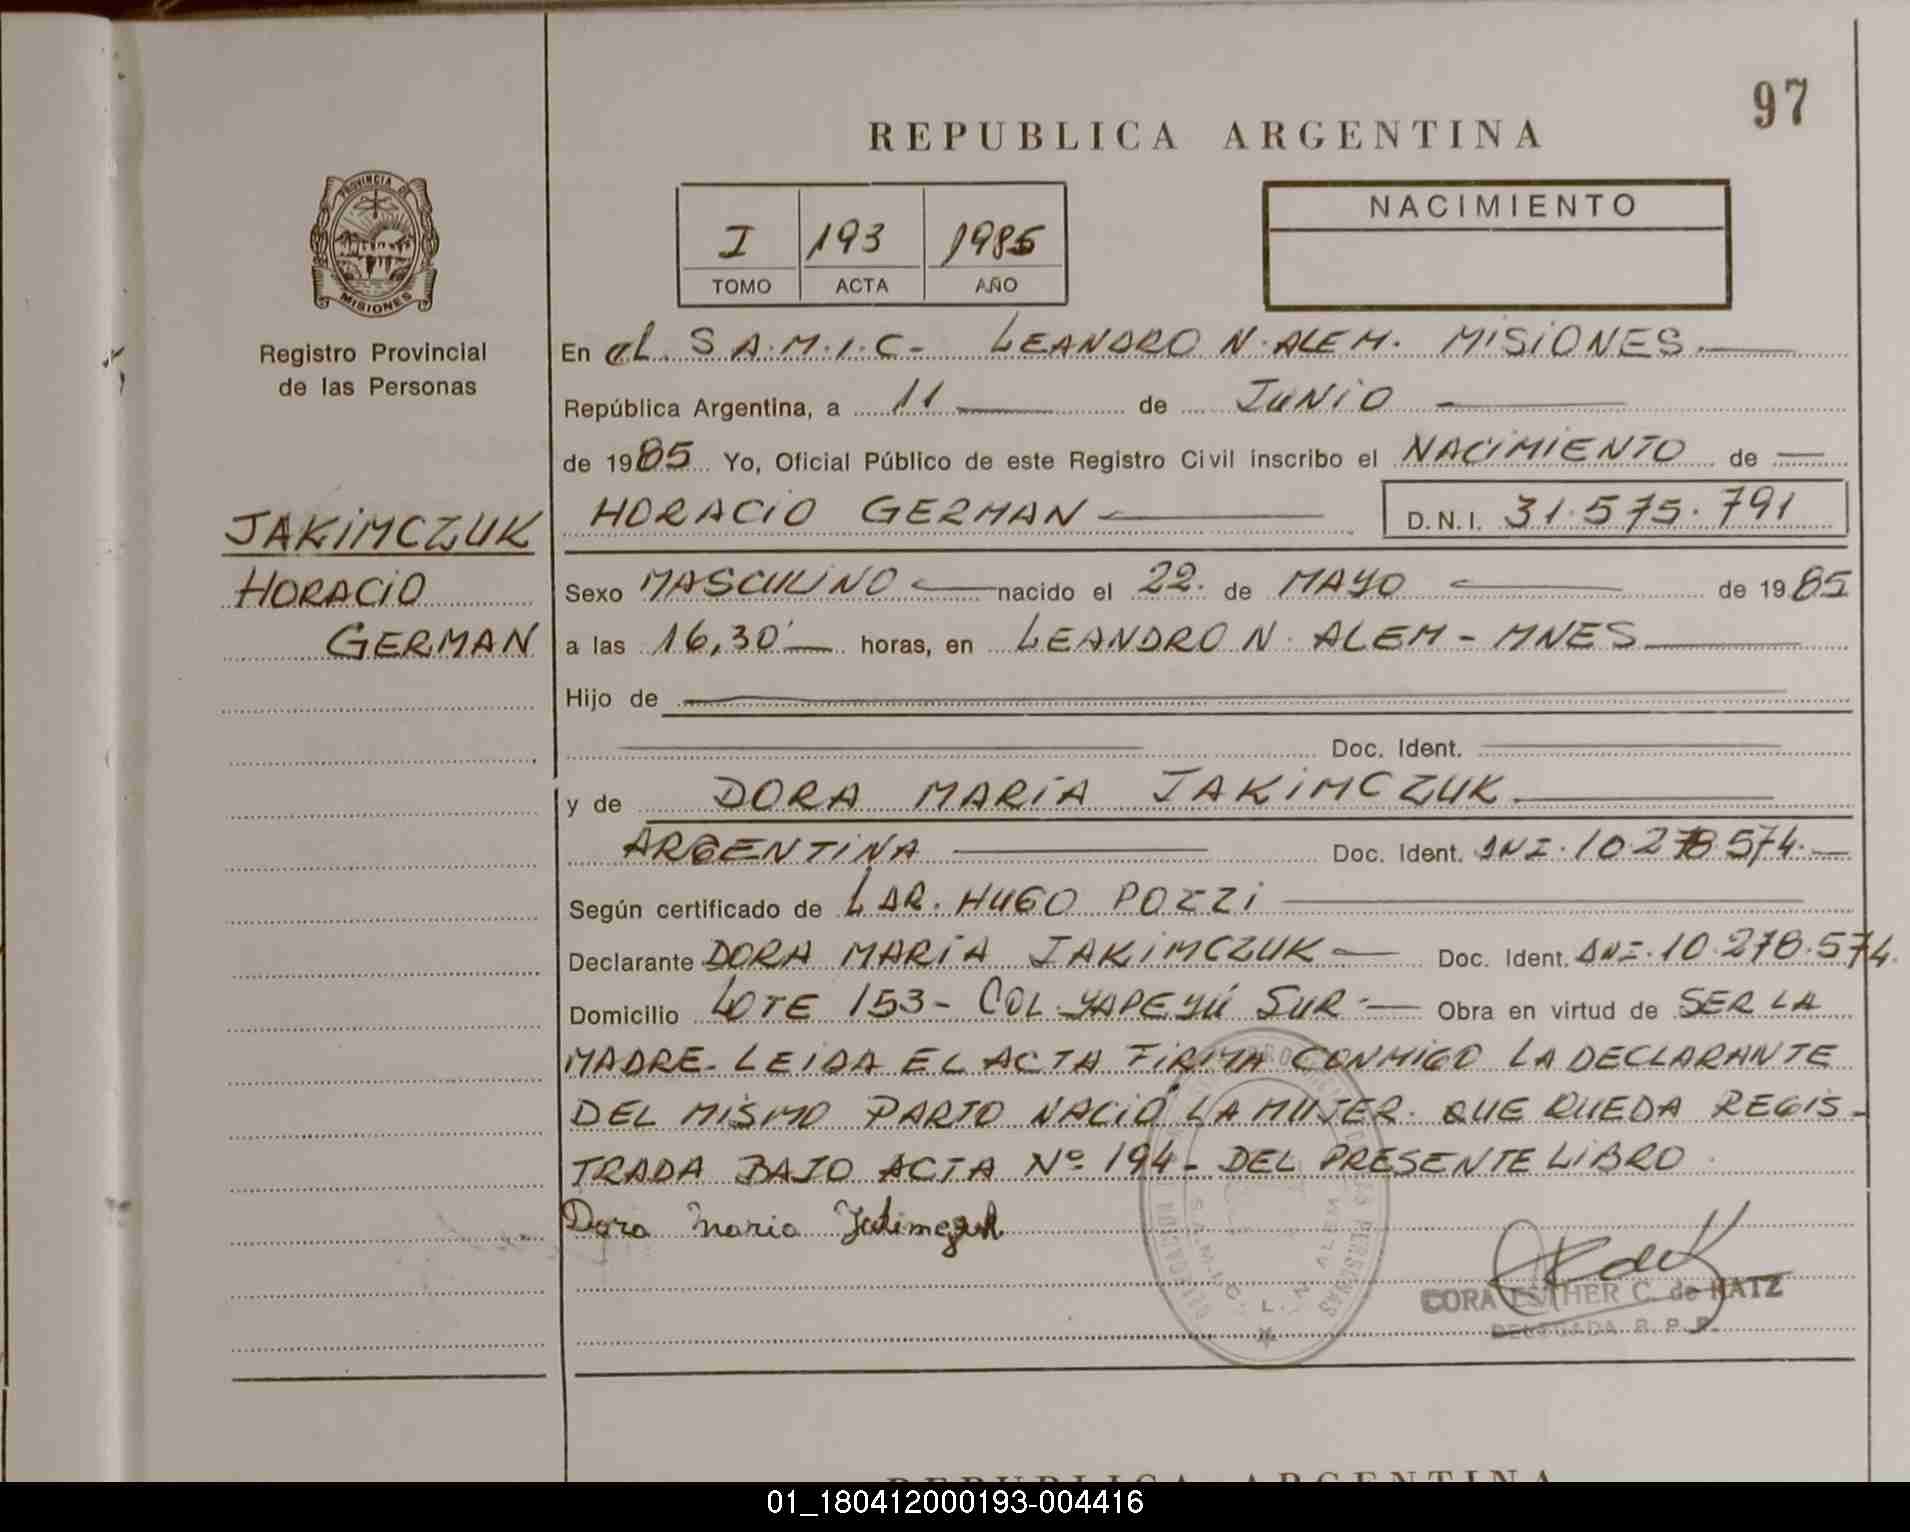 97
REPUBLICA ARGENTINA
PROVINCIA DE
MISIONES
Registro Provincial
de las Personas
I 193 1985
TOMO ACTA AÑO
NACIMIENTO
En el S.A.M.I.C- LEANDRO N. ALEM. MISIONES.
República Argentina, a 11 de JUNIO
de 1985 Yo, Oficial Público de este Registro Civil inscribo el NACIMIENTO de
HORACIO GERMAN D.N.I. 31.575.791
JAKIMCZUK
HORACIO
GERMAN
Sexo MASCULINO nacido el 22. de MAYO de 1985
a las 16,30' horas, en LEANDRO N. ALEM - MNES
Hijo de
Doc. Ident.
y de DORA MARIA JAKIMCZUK
ARGENTINA Doc. Ident. DNI. 10.278.574.
Según certificado de DR. HUGO POZZI
Declarante DORA MARIA JAKIMCZUK Doc. Ident. DNI. 10.278.574.
Domicilio LOTE 153- COL. YAPEYÚ SUR- Obra en virtud de SER LA
MADRE. LEIDA EL ACTA FIRMA CONMIGO LA DECLARANTE
DEL MISMO PARTO NACIÓ LA MUJER. QUE QUEDA REGIS-
TRADA BAJO ACTA Nº 194- DEL PRESENTE LIBRO.
Dora Maria Jakimczuk
CORA ESTHER C. de KATZ
DELEGADA R. P. P.
REPUBLICA ARGENTINA
01_180412000193-004416